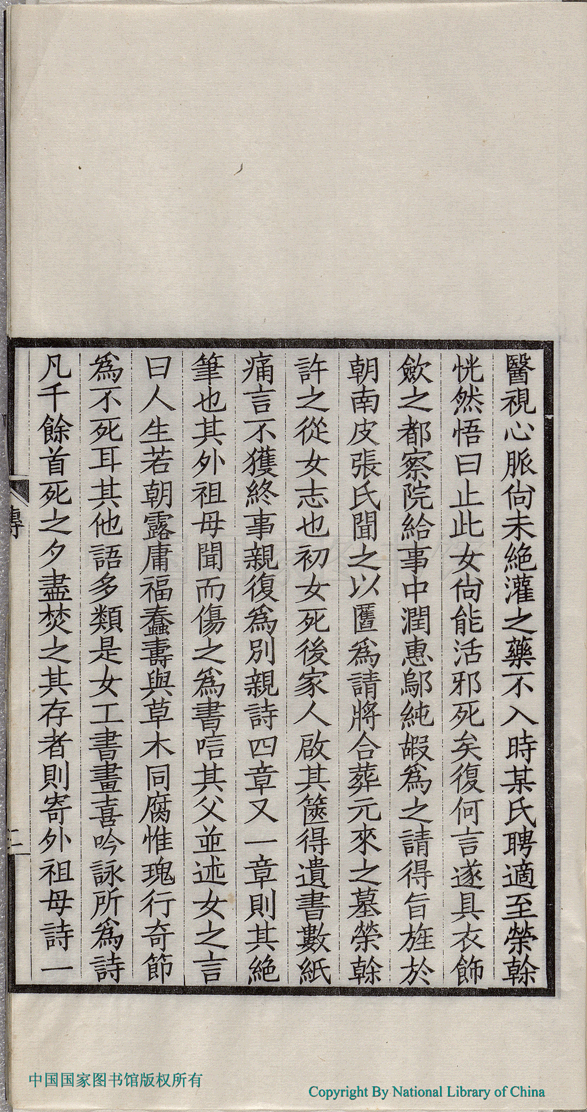 醫視心脈尙未絶灌之藥不入時某氏聘適至榮榦
恍然悟曰止此女尙能活邪死矣復何言遂具衣飾
斂之都察院給事中潤惠鄔純嘏爲之請得旨旌於
朝南皮張氏聞之以匶爲請將合葬元來之墓榮榦
許之從女志也初女死後家人啟其篋得遺書數紙
痛言不獲終事親復爲別親詩四章又一章則其絶
筆也其外祖母聞而傷之爲書唁其父並述女之言
曰人生若朝露庸福蠢壽與草木同腐惟瑰行奇節
爲不死耳其他語多類是女工書畫喜吟詠所爲詩
凡千餘首死之夕盡焚之其存者則寄外祖母詩一
傳
二
中国国家图书馆版权所有
Copyright By National Library of China